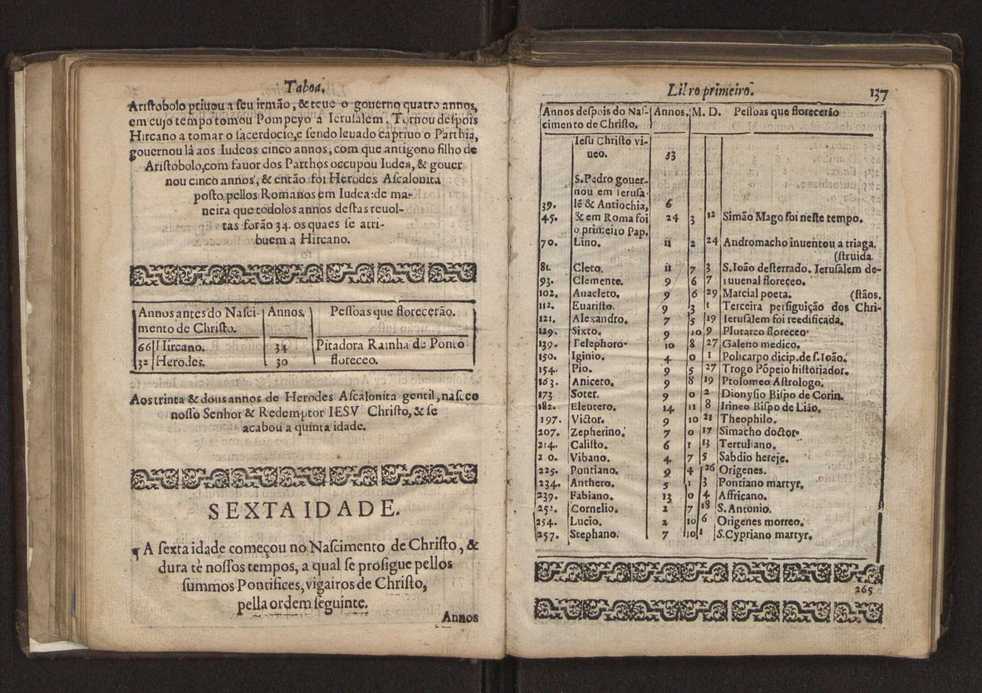 Taboa.
Aristobolo priuou a seu irmão, & teue o gouerno quatro annos,
em cujo tempo tomou Pompeyo a Ierusalem. Tornou despois
Hircano a tomar o sacerdocio, e sendo leuado captiuo o Parthia,
gouernou lá aos Iudeos cinco annos, com que antigono filho de
Aristobolo, com fauor dos Parthos occupou Iudea, & gouer
nou cinco annos, & então foi Herodes Ascalonita
posto pellos Romanos em Iudea: de ma-
neira que todolos annos destas reuol-
tas forão 34. os quaes se atri-
buem a Hircano.
Annos antes do Nasci- Annos. Pessoas que florecerão.
mento de Christo.
66 Hircano. 34 Pitadora Rainha de Ponto
32 Herodes. 30 floreceo.
Aos trinta & dous annos de Herodes Ascalonita gentil, nasceo
nosso Senhor & Redemptor IESV Christo, & se
acabou a quinta idade.
SEXTA IDADE.
¶ A sexta idade começou no Nascimento de Christo, &
dura tè nossos tempos, a qual se prosigue pellos
summos Pontifices, vigairos de Christo,
pella ordem seguinte.
Annos
Libro primeiro. 137
Annos despois do Nas- Annos. M. D. Pessoas que florecerão
cimento de Christo.
Iesu Christo vi-
ueo. 33
S. Pedro gouer-
nou em Ierusa
39. lé & Antiochia, 6
45. & em Roma foi 24 3 12 Simão Mago foi neste tempo.
o primeiro Pap.
70. Lino. 11 2 24 Andromacho inuentou a triaga.
(struida.
81. Cleto. 11 7 3 S. Ioão desterrado. Ierusalem de-
93. Clemente. 9 6 7 Iuuenal floreceo.
102. Anacleto. 9 6 29 Marcial poeta. (stãos.
112. Euaristo. 9 3 1 Terceira persiguição dos Chri-
121. Alexandro. 7 5 19 Ierusalem foi reedificada.
129. Sixto. 9 10 9 Plutarco floreceo
139. Telephoro 10 8 27 Galeno medico.
150. Iginio. 4 0 1 Policarpo dicip. de s. Ioão.
154. Pio. 9 5 27 Trogo Põpeio historiador.
163. Anicero. 9 8 19 Ptolomeo Astrologo.
173 Soter. 9 0 2 Dionysio Bispo de Corin.
182. Eleutero. 14 11 8 Irineo Bispo de Lião.
197. Victor. 9 10 21 Theophilo.
207. Zepherino. 7 0 17 Simacho doctor
214. Calisto. 6 1 13 Tertuliano.
2 0. Vibano. 4 7 5 Sabdio hereje.
225. Pontiano. 9 4 26 Origenes.
234. Anthero. 5 1 3 Pontiano martyr.
239. Fabiano. 13 0 4 Affricano.
252. Cornelio. 2 7 18 S. Antonio.
254. Lucio. 2 10 6 Origenes morreo.
257. Stephano. 7 10 1 S. Cypriano martyr.
265